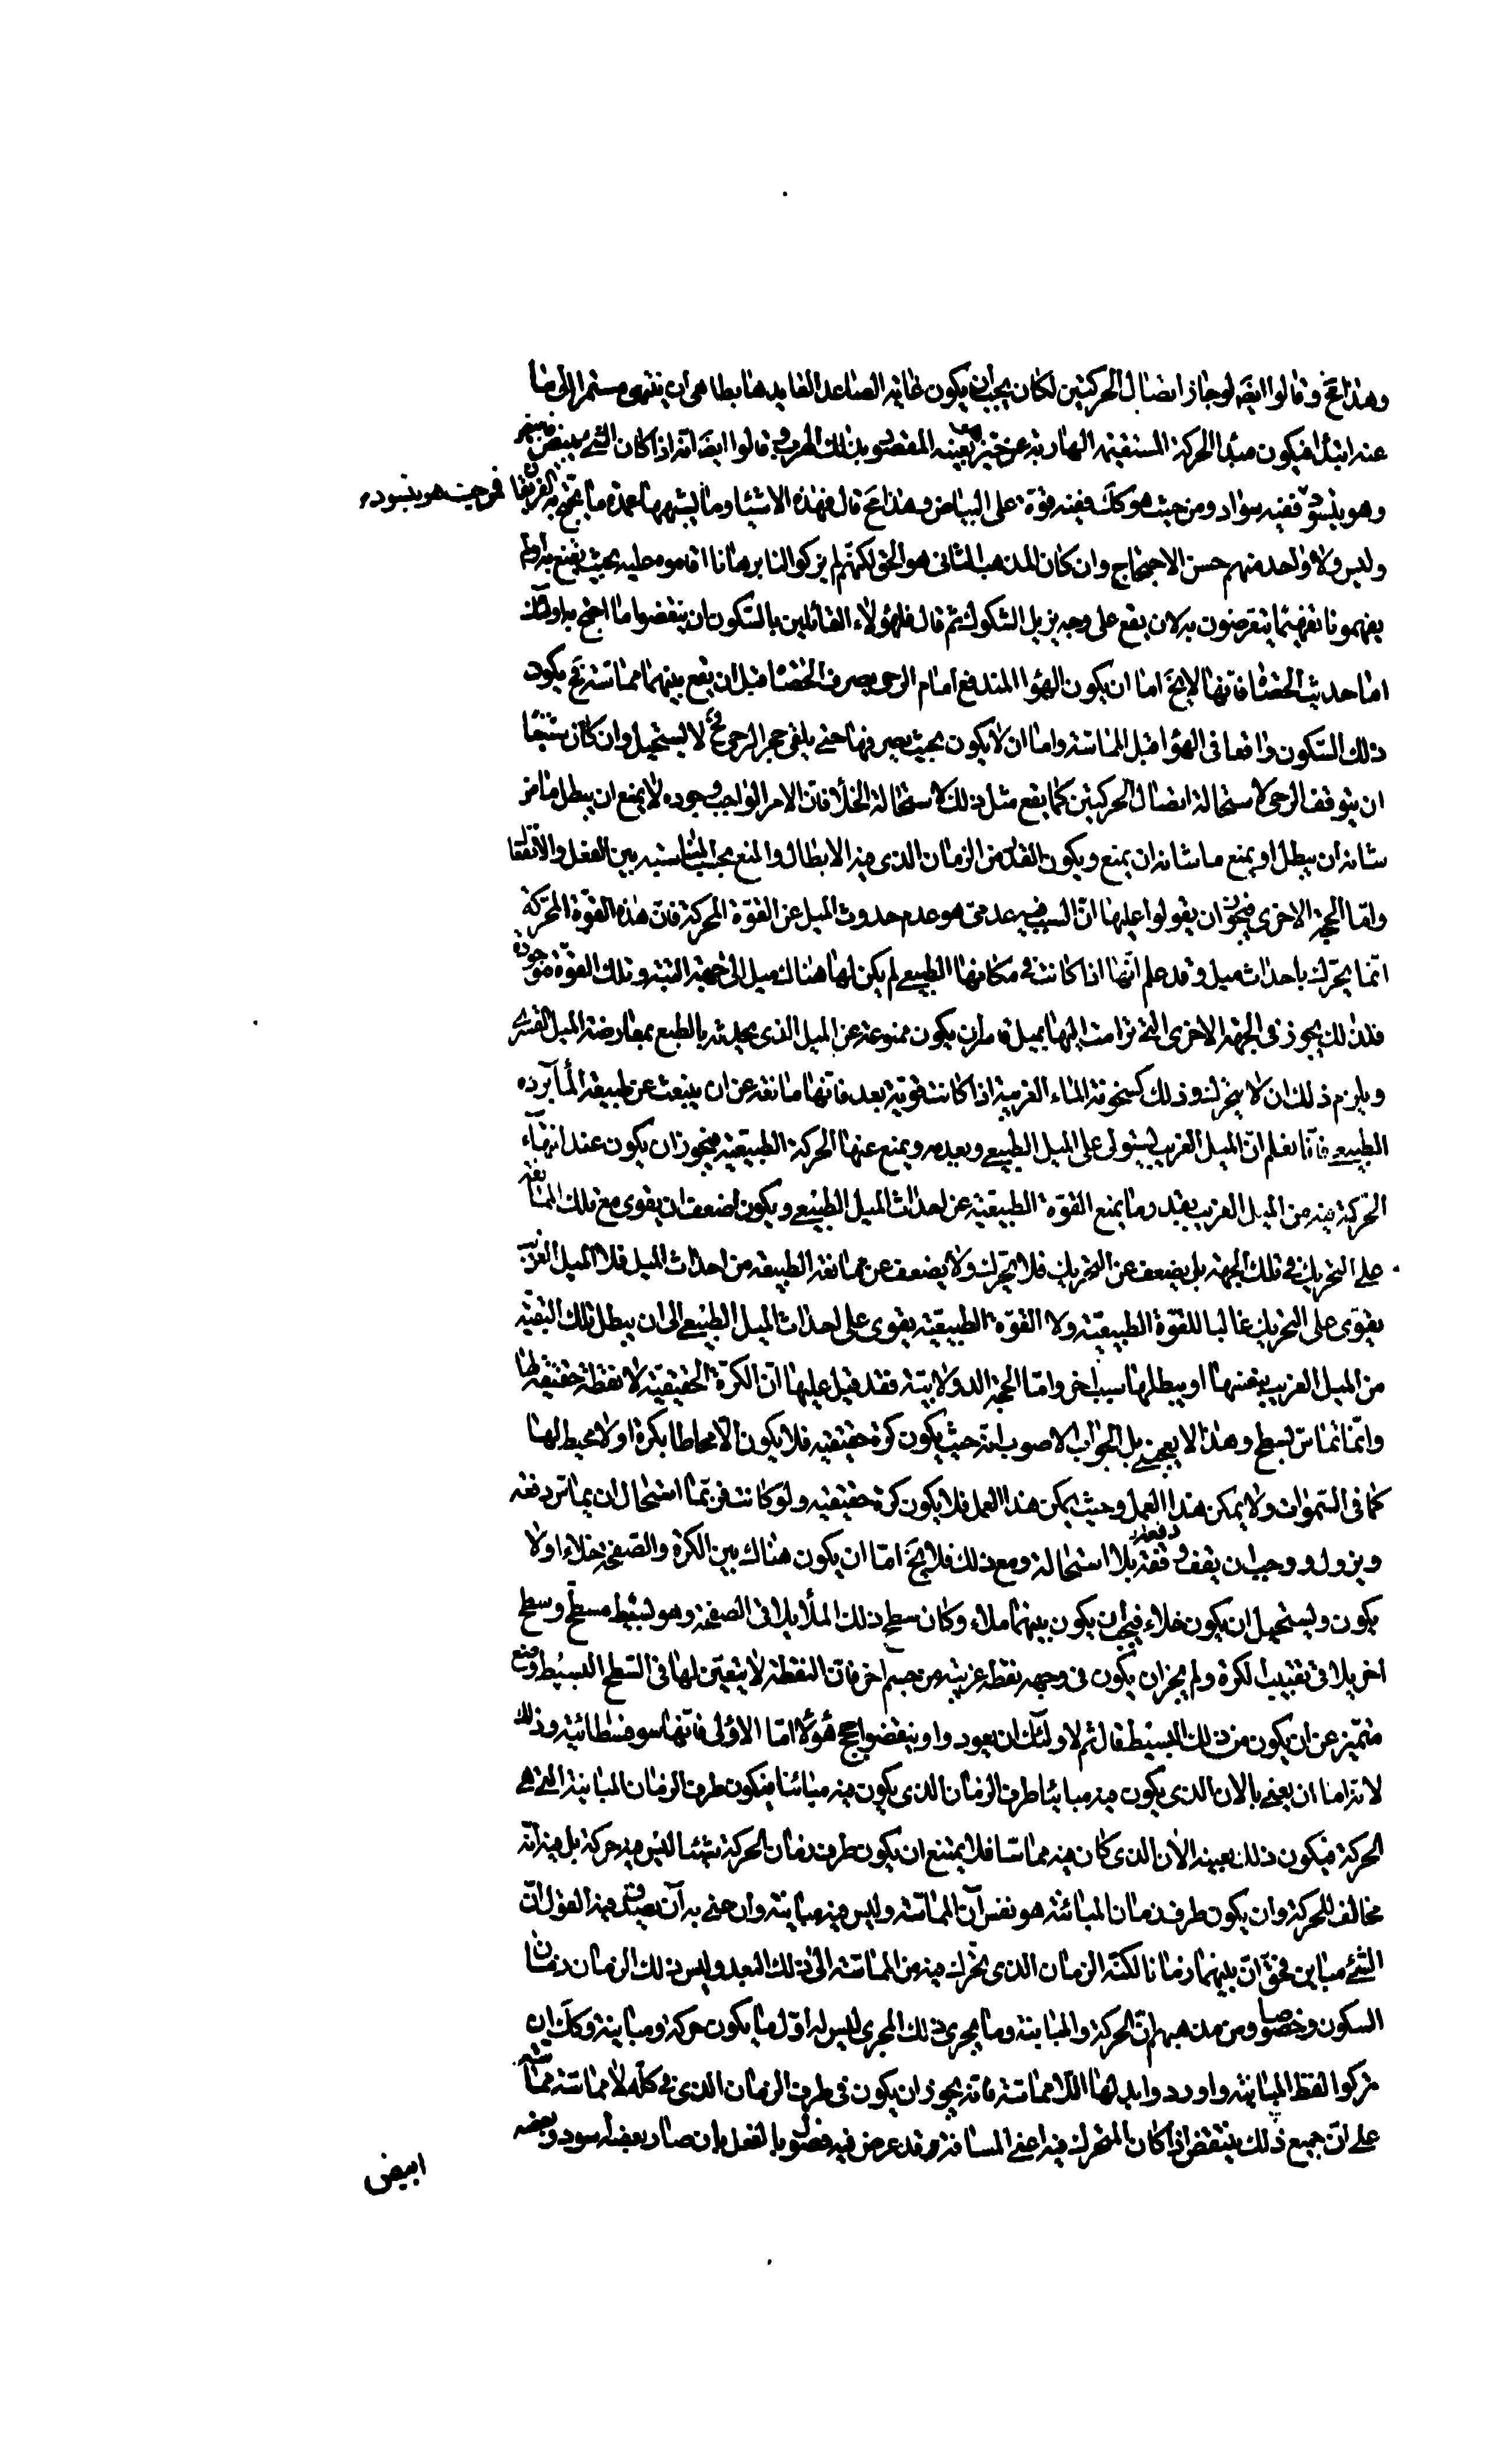 وهذا مح وقالوا ايضَ لو جاز اتصال الحركتين لكان يجب ان يكون غاية الصاعد العايد هابطا هي ان ينتهى مستمرا الى ما
عنه ابتدأ فيكون مبدأ الحركة المستقيمة الهاربة عن حيز بعينه المقصود بذلك الهرب وقالوا ايضَ انه اذا كان الشئ يبيض
وهو يتسود ففيه سواد ومن حيث هو كك ففيه قوة على البياض وهذا مح قال فهذه الاشيا وما يشبهها عمدة ما يحتج به الفريقا
فمن حيث هو يتسود
وليس ولا واحد منهم حسن الاحتجاج وان كان المذهب الثانى هو الحق لكنهم لم يذكروا لنا برهانا اقاموه عليه بحيث يقنع به
يفهمونا تفهيما يتعرضون به لان يقع على وجه يزيل الشكوك ثم قال فلهؤلاء القائلين بالسكون ان ينقضوا ما احتج به اولئك
اما حديث الحصا فانها لايخَ اما ان يكون الهوا المندفع امام الرحى يصرف الحصا قبل ان يقع بينهما مماسة فح يكون
ذلك السكون واقعا فى الهوا قبل المماسة واما ان لا يكون بحيث يصرفها حتى يلقى حجر الرحى فح لا يستحيل وان كان شنيعا
ان يتوقف الرحى لاستحالة اتصال الحركتين كما يقع مثل ذلك لاستحالة الخلأ فان الامر الواجب وجوده لا يمنع ان يبطل ما من
شانه ان يبطل او يمنع ما شانه ان يمنع ويكون القدر من الزمان الذى فيه الابطال والمنع بحسب المناسبة بين الفعل والانفعا
واما الحجة الاخرى فيجوز ان يقولوا عليها ان السبب فيه عدمى هو عدم حدوث الميل عن القوة المحركة فان هذه القوة المحركة
انما يحرك باحداث ميل وقد علم انها اذا كانت فى مكانها الطبيعى لم يكن لها هناك ميل الى جهة البتة وتلك القوة موجودة
فلذلك يجوز فى الجهة الاخرى التى ترامت اليها بميل قاسر ان يكون ممنوعة عن الميل الذى يحدثه بالطبع بمعارضة الميل القسرى
ويلزم ذلك ان لا يتحرك وذلك كسخونة الماء الغريبة اذا كانت قوية بعد فانها مانعة عن ان ينبعث عن طبيعة المأ برده
الطبيعى فانا نعلم ان الميل الغريب يستولى على الميل الطبيعى ويعدمه ويمنع عنها الحركة الطبيعية فيجوز ان يكون عند انتهاء
الحركة فيه من الميل الغريب بقدر ما يمنع القوة الطبيعية عن احداث الميل الطبيعى ويكون اضعف ان يقوى مع تلك الممانعة
على التحريك فى تلك الجهة بل يضعف عن التحريك فلا يتحرك ولا يضعف عن ممانعة الطبيعة من احداث الميل فلا الميل الغريب
يقوى على التحريك غالبا للقوة الطبيعية ولا القوة الطبيعية يقوى على احداث الميل الطبيعى الى ان يبطل تلك البقية
من الميل الغريب بنفسها او يبطلها سبب اخر واما الحجة الدولابية فقد قيل عليها ان الكرة الحقيقية لا نقطة حقيقية لها
وانما تماس بسطح وهذا لا يعجبنى بل الجواب الاصوب انه حيث يكون كرة حقيقية فلا يكون الا محاطا بكرة او لا محيط لها
كما فى السموات ولا يمكن هذا العمل وحيث يمكن هذا العمل فلا يكون كرة حقيقية ولو كانت فربما استحال ان يماس دفعة
ويزول ووجب ان يقف وقفة بلا استحالة ومع ذلك فلا يخَ اما ان يكون هناك بين الكرة والصفحة خلاء او لا
يكون ويستحيل ان يكون خلاء فيجب ان يكون بينهما ملاء وكان سطح ذلك الملأ يلاقى الصفحة وهو بسيط مسطح وسطح
اخر يلاقى تقبيب الكرة ولم يجز ان يكون فى وجهه نقطة غريبة من جسم اخر فان النقطة لا يتعين لها فى السطح البسيط وضع
متميز عن ان يكون من ذلك البسيط قال ثم لاولئك ان يعودوا وينقضوا حجج هؤلا اما الاولى فانها سوفسطائية وذلك
لانه اما ان يعنى بالان الذى يكون فيه مباينا طرف الزمان الذى يكون فيه مباينا فيكون طرف الزمان المباينة التى هى
الحركة فيكون ذلك بعينه الان الذى كان فيه مماسا فلا يمتنع ان يكون طرف زمان الحركة شيئا ليس فيه حركة بل فيه انه
مخالف للحركة وان يكون طرف زمان المباينة هو نفس آن المماسة وليس فيه مباينة وان عنى به آن يصدق فيه القول ان
الشئ مباين فحق ان بينهما زمانا لكنه الزمان الذى تحرك فيه من المماسة الى ذلك البعد وليس ذلك الزمان زمان
السكون وخصوصا ومن مذهبهم ان الحركة والمباينة وما يجرى ذلك المجرى ليس له اول ما يكون حركة ومباينة وكك ان
تركوا لفظ المباينة واوردوا بدلها اللا مماسة فانه يجوز ان يكون فى طرف الزمان الذى فى كله لا مماسة مماسة
على ان جميع ذلك ينتقض اذا كان المتحرك فيه اعنى المسافة قد عرض فيه فصول بالفعل بان صار بعضه اسود وبعضه
ابيض